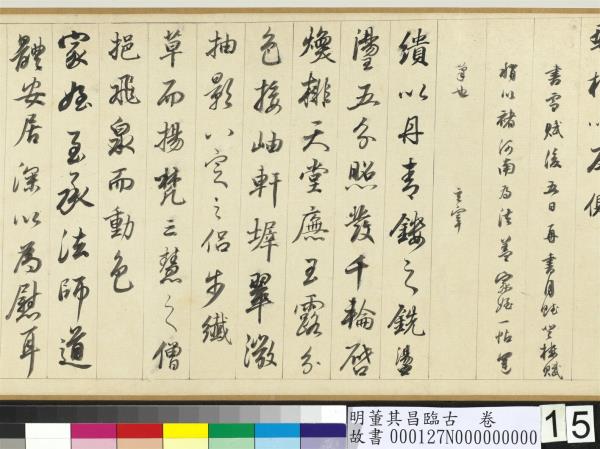 書雪賦後五日再書月賦登樓賦
稍以褚河南為法家姪一帖
筆也
玄宰
繢以丹青鏤之銑
盪五分照發千輪啓
煥排天堂廡玉露分
色接岫軒墀翠瀲
抽影八定之侶步纖
草而揚梵三慧之僧
挹飛泉而動色
家姪至承法師道
體安居深以為慰耳
明董其昌臨古 卷
故書 000127N000000000
15